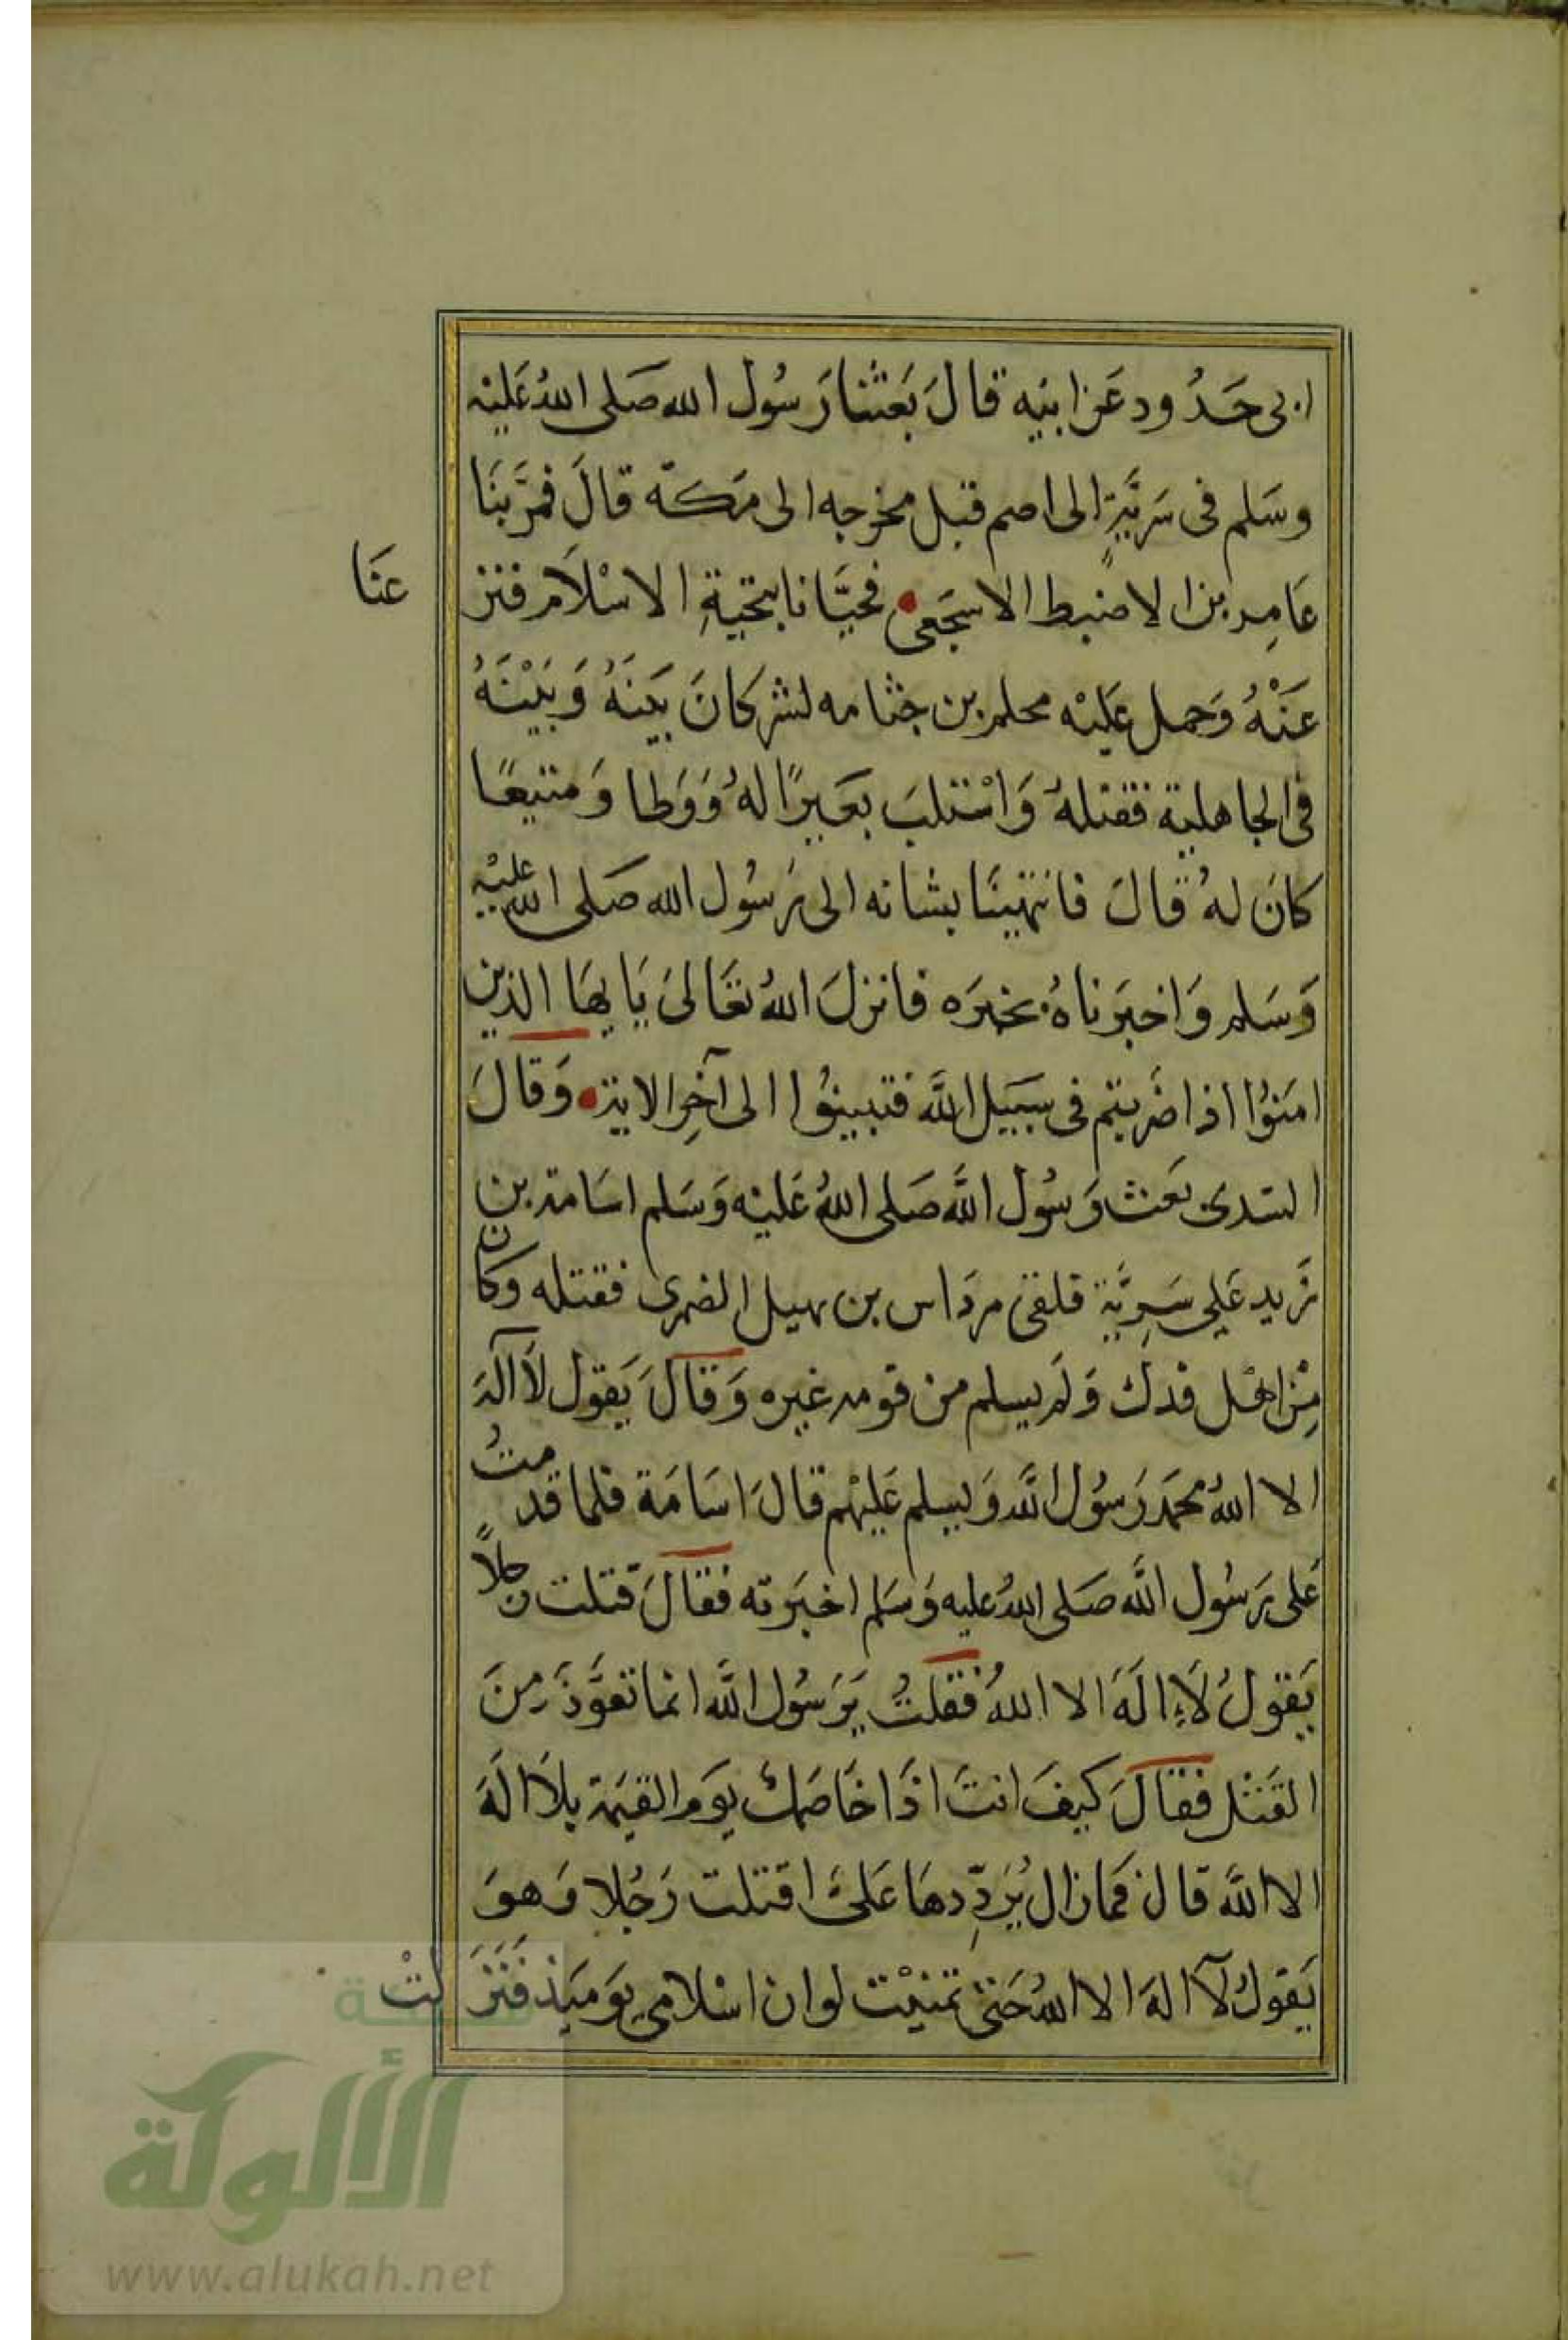 ابى حَدُود عَن ابيه قالَ بَعَثَنا رَسُول الله صَلى اللهُ عَليْه
وسَلم فى سَرِيَّةٍ الى اضم قبل مخرجه الى مَكة قالَ فمرَّ بنَا
عَامِر بن الاضبط الاشجَعى فحيَّانا بتحيةِ الاسْلَام فنز
عنَا
عَنْهُ وَحمل عَليْه محلم بن جثامه لشر كانَ بَينَهُ وَبَيْنَهُ
فى الجاهلية فقتلهُ وَاسْتلبَ بعَيرًا لهُ وَوَطا وَمتيعًا
كانَ لهُ قالَ فانتهينَا بشانه الى رَسُول الله صَلى الله عليْه
وَسَلم وَاخبرَناهُ بخبرَه فانزلَ اللهُ تعَالىَ يَايهَا الذين
امَنوُا اذا ضَربتم فى سبَيل اللَّه فتبينوُا الى آخِر الاية وَقالَ
السّدى بَعث رَسُول اللَّه صَلى اللهُ عَليْه وَسَلم اسَامة بن
زَيد عَلى سَرِيَّة فلقى مردَاس بن نهيل الضمرى فقتله وكان
مِن اهْل فدك وَلم يسلم من قومه غيره وَقالَ يَقول لَا آلهَ
الا اللهُ محمَد رَسُول اللَّه وَيسلم عَليْهم قالَ اسَامَة فلما قدمتُ
عَلى رَسُول اللَّه صَلى اللهُ عليه وَسَلم اخبرَته فقالَ قتلت رجلاً
يَقولُ لَا اِلَهَ الا اللهُ فقلتُ يَرَسُول اللَّه انما تعَوَّذ مِنَ
القَتْل فقالَ كيفَ انتَ اذَا خَاصَمك يَوم القيمَة بلَا الَهَ
الا اللَّه قال فمازال يُرَدِّدهَا عَلىَّ اقتلت رَجُلا وَهوَ
يَقولُ لَآ الهَ الا اللهُ حَتى تمنيْت لو ان اسْلامى يَوميَذ فَنَزَلتْ
شبكة
الألوكة
www.alukah.net